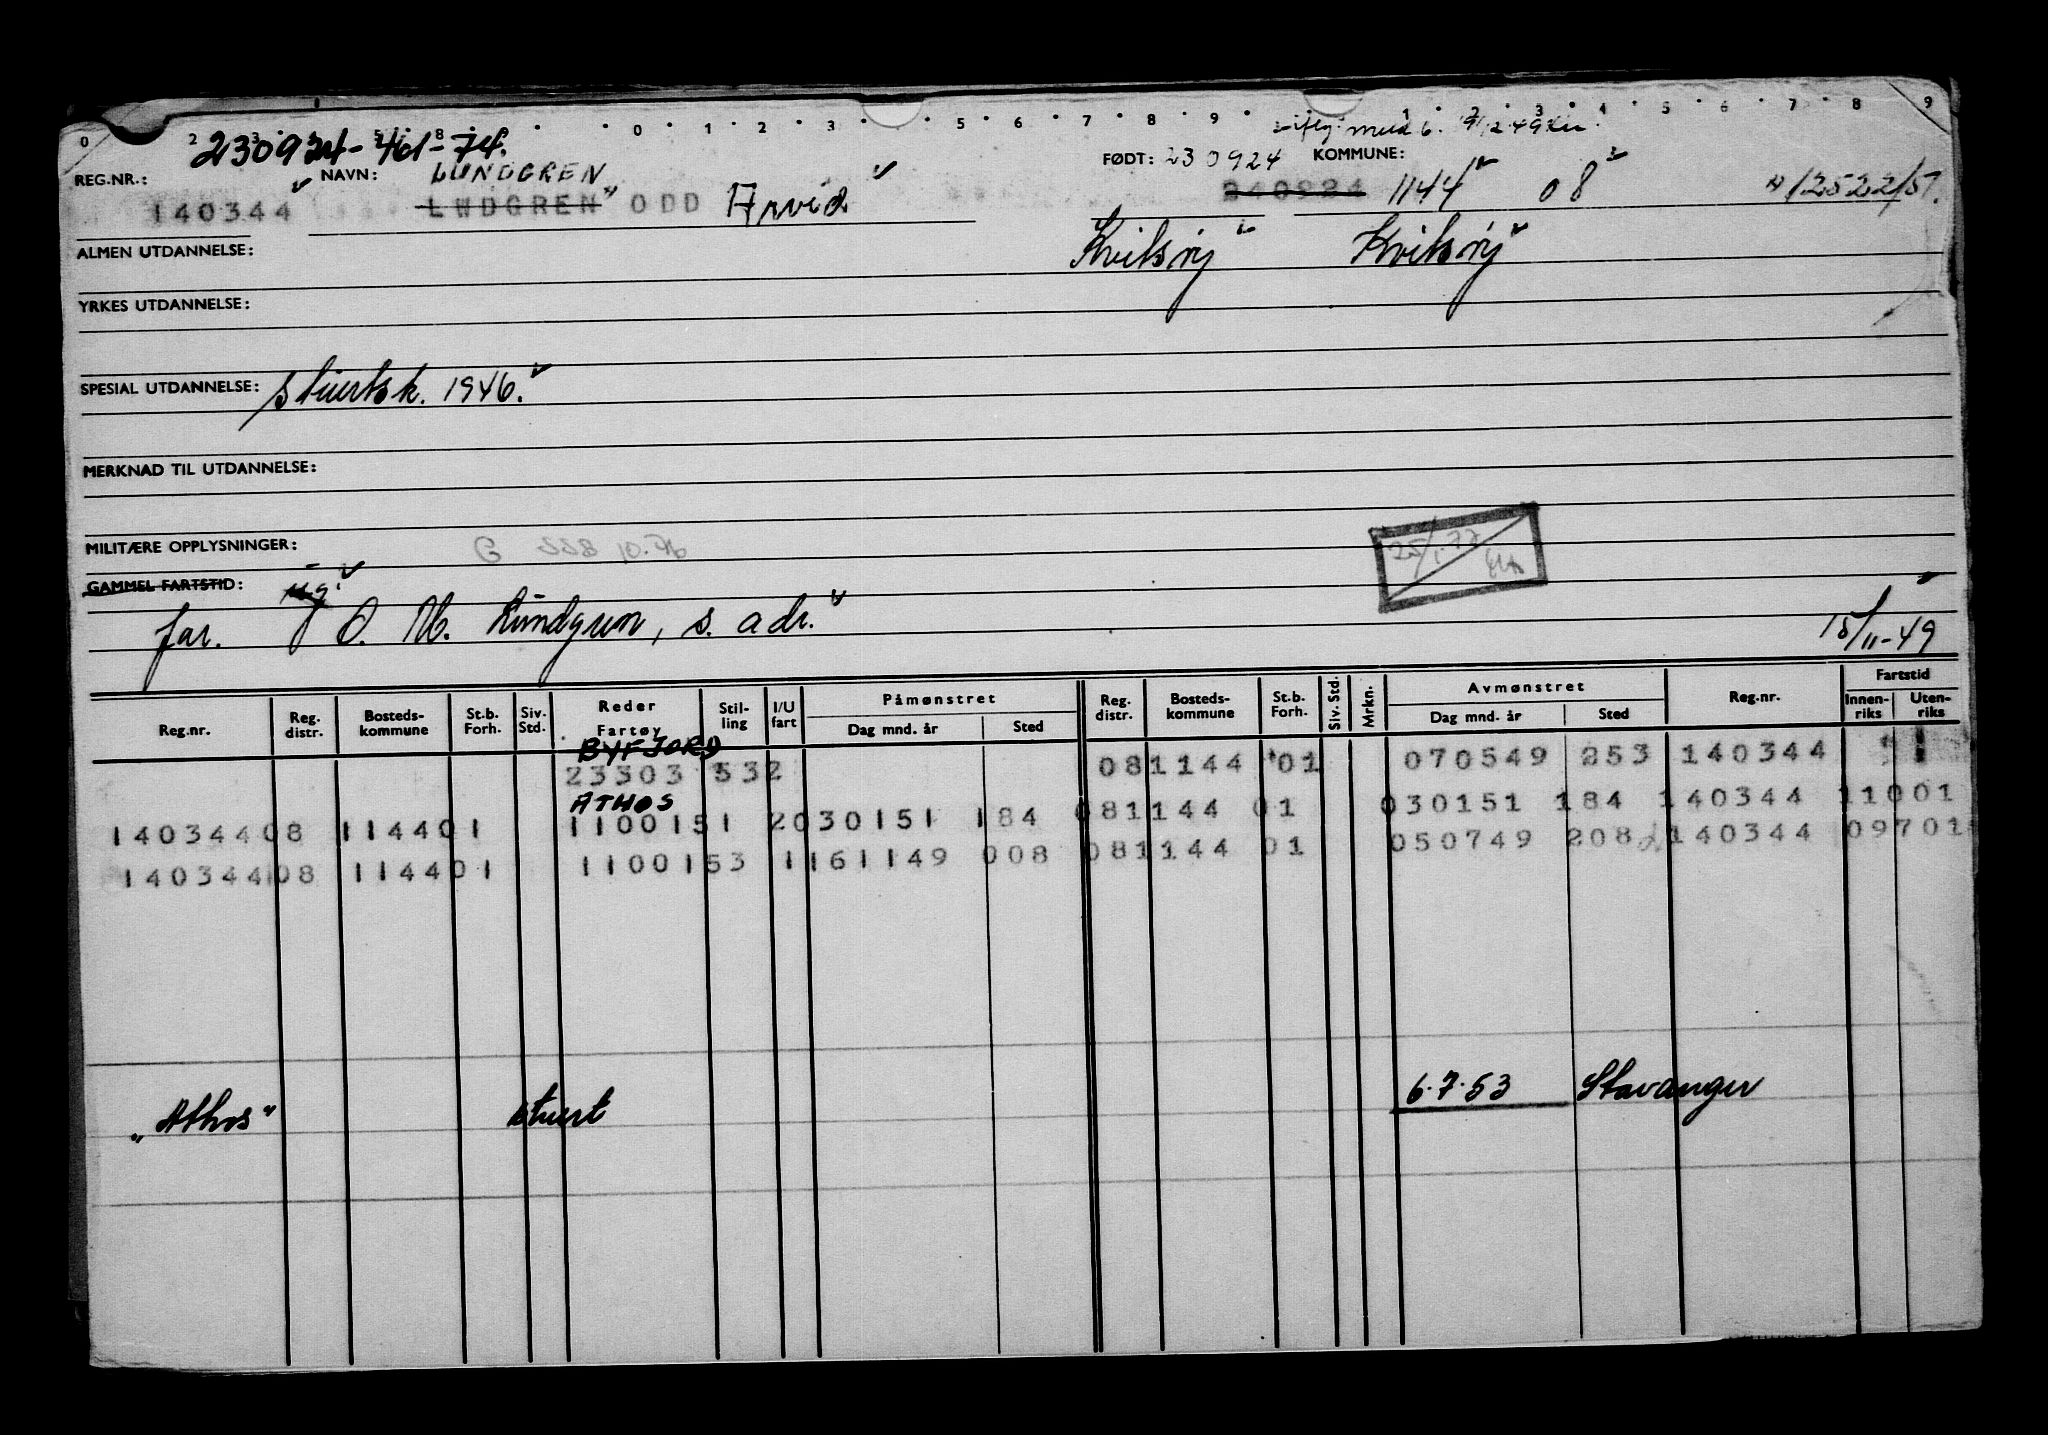 0 2 3 5 8 0 1 2 3 5 6 7 8 9 1 2 3 4 5 6 7 8 9
230924-461-74.
9/12 49
REG.NR.: NAVN: LUNDGREN FØDT: 230924 KOMMUNE:
140344 LWDGREN ODD Arvid 240924 1144 08 12522/51.
ALMEN UTDANNELSE: Kvitsøy Kvitsøy
YRKES UTDANNELSE:
SPESIAL UTDANNELSE: stuertsk. 1946.
MERKNAD TIL UTDANNELSE:
MILITÆRE OPPLYSNINGER:
25/1.77
GAMMEL FARTSTID:
far. O. M. Lundgren, s. adr. 15/11-49
Reg.nr. Reg. distr. Bosteds-kommune St.b. Forh. Siv. Std. Reder Fartøy Stil-ling I/U fart Påmønstret Dag mnd. år Sted Reg. distr. Bosteds-kommune St.b. Forh. Siv. Std. Mrkn. Avmønstret Dag mnd. år Sted Reg.nr. Fartstid Innen-riks Uten-riks
BYFJORD
23303 532 081144 01 070549 253 140344
ATHOS
14034408 114401 1100151 2030151 184 081144 01 030151 184 140344 11001
14034408 114401 1100153 1161149 008 081144 01 050749 208 140344 09701
"Athos" stuert 6.7.53 Stavanger